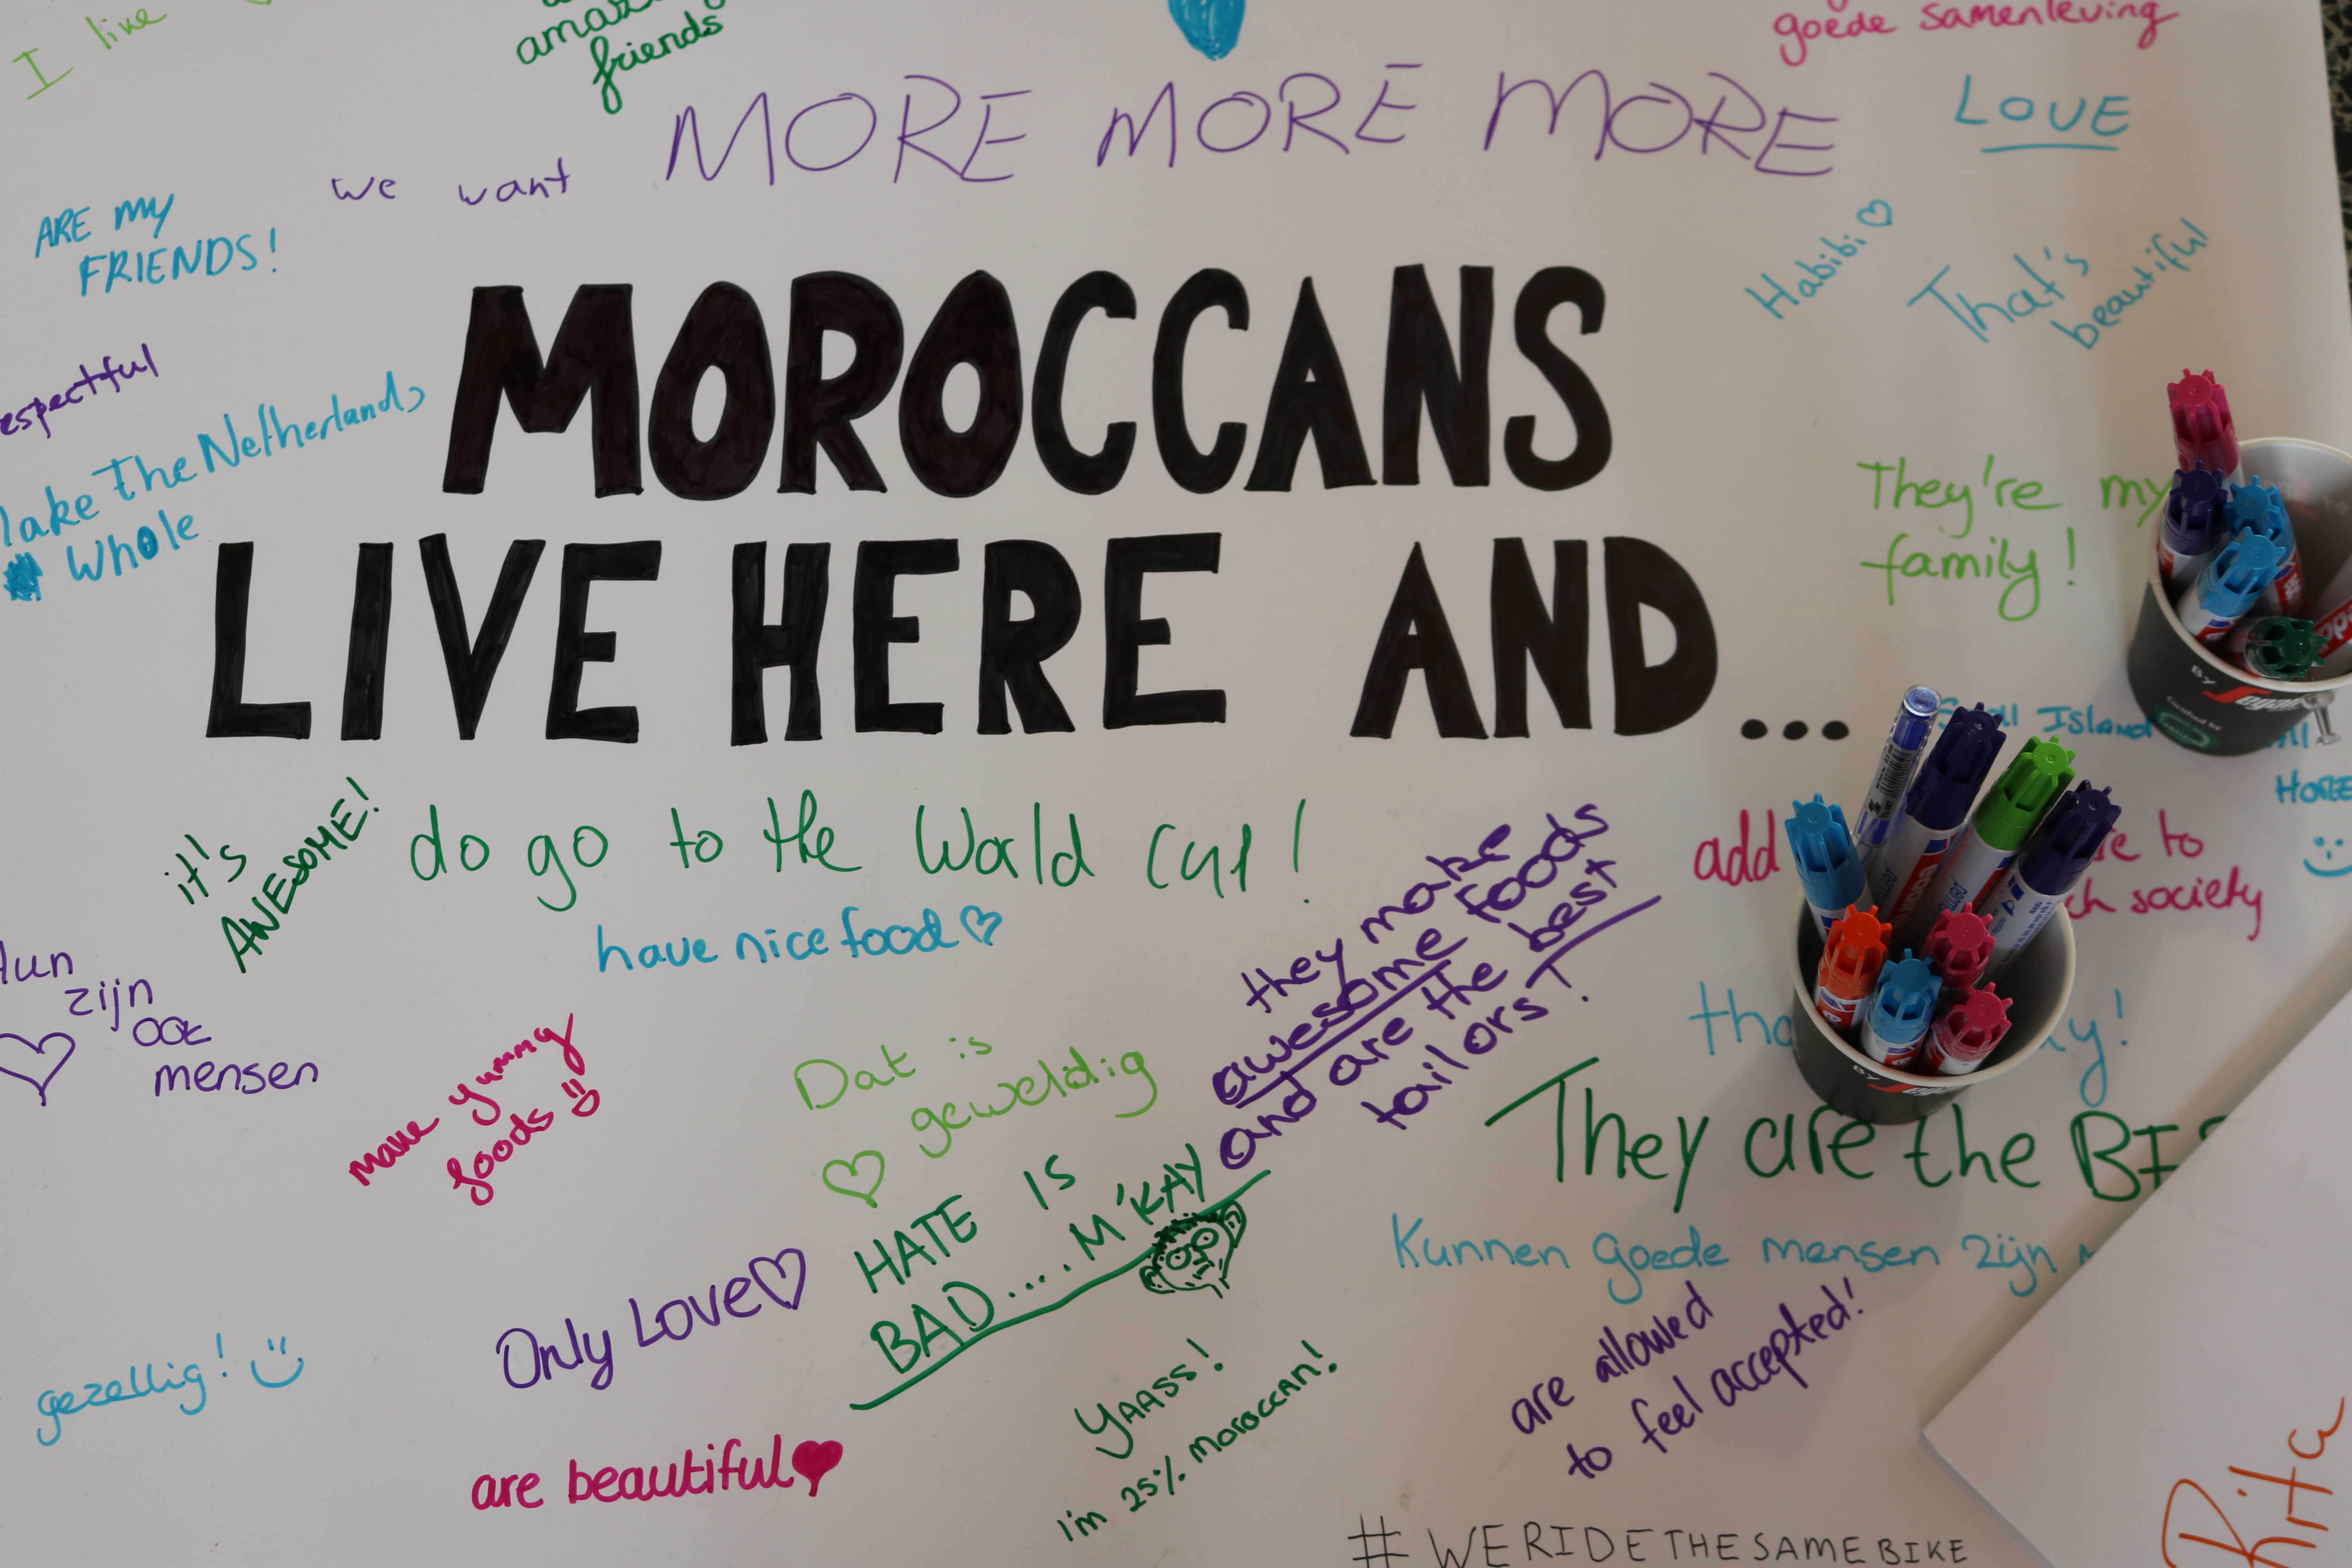 I live
friends
goede samenleving
we want MORE MORE MORE
LOVE
ARE MY
FRIENDS!
Habibi
That's
beautiful
MOROCCANS
LIVE HERE AND...
espectful
ake The Netherlands
Whole
They're my
family!
Island
HOREE
it's
AWESOME!
do go to the World Cup!
have nice food
they make
awesome foods
and are the best
tailors!
add
to
society
zijn
ook
mensen
make yummy
foods
Dat is
geweldig
HATE IS
BAD.... M'KAY
They are the
Kunnen goede mensen zijn
are allowed
to feel accepted!
Only Love
gezellig!
are beautiful
YAASS!
I'm 25% moroccan!
#WERIDETHESAMEBIKE
Rita
BY
BY